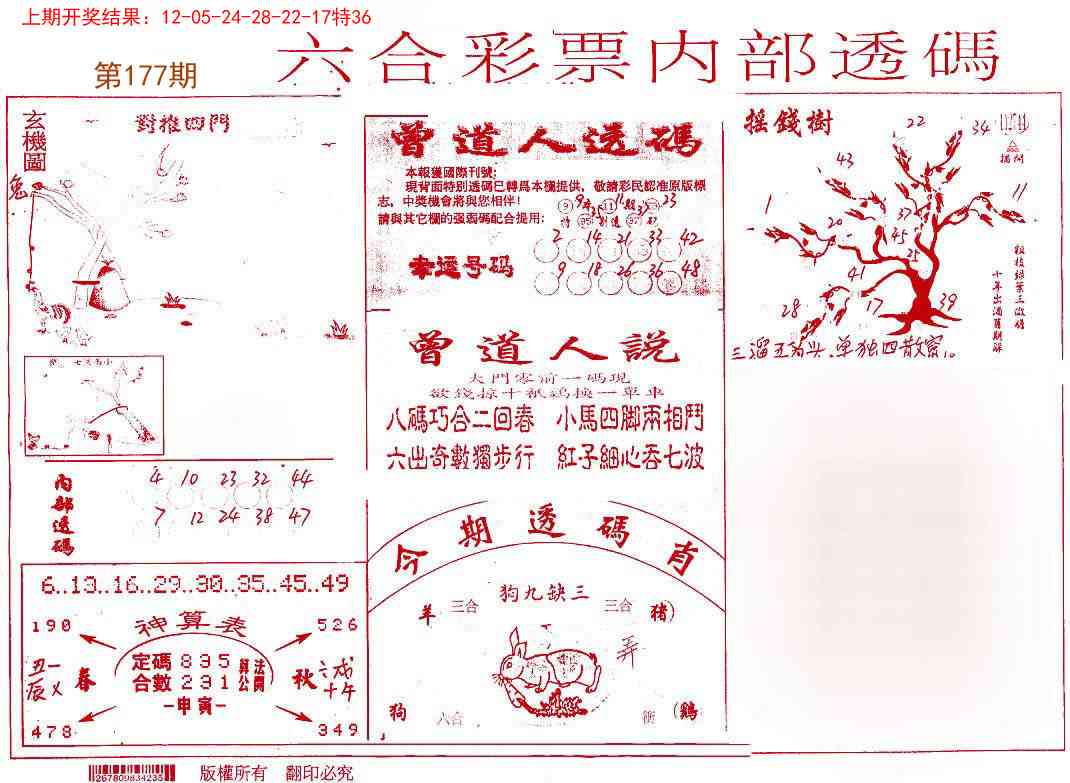 上期开奖结果：12-05-24-28-22-17特36
六合彩票内部透碼
第177期
玄機圖
對推四門
兔
曾道人送碼
本報獲國際刊號:
現背面特别透碼已轉爲本欄提供，敬請彩民認准原版標
志，中獎機會將與您相伴!
請與其它欄的强弱碼配合提用:
幸運号码
2 14 21 33 42
9 18 26 36 48
曾道人說
大門零前一碼現
八碼巧合二回春 小馬四脚兩相鬥
六出奇數獨步行 紅子細心吞七波
搖錢樹
22
34
43
11
1
20
37
45
25
41
28
17
39
粗枝綠葉三澂碼
内部透碼
4 10 23 32 44
7 12 24 38 47
6..13..16..29..30..35..45..49
神算表
190
526
春
秋
丑一
辰乂
定碼 835
合數 231
算公
法開
-申寅-
478
349
今期透碼肖
狗九缺三
羊 三合
三合 豬)
弄
狗 六合
衝 (鷄)
267809834235
版權所有 翻印必究